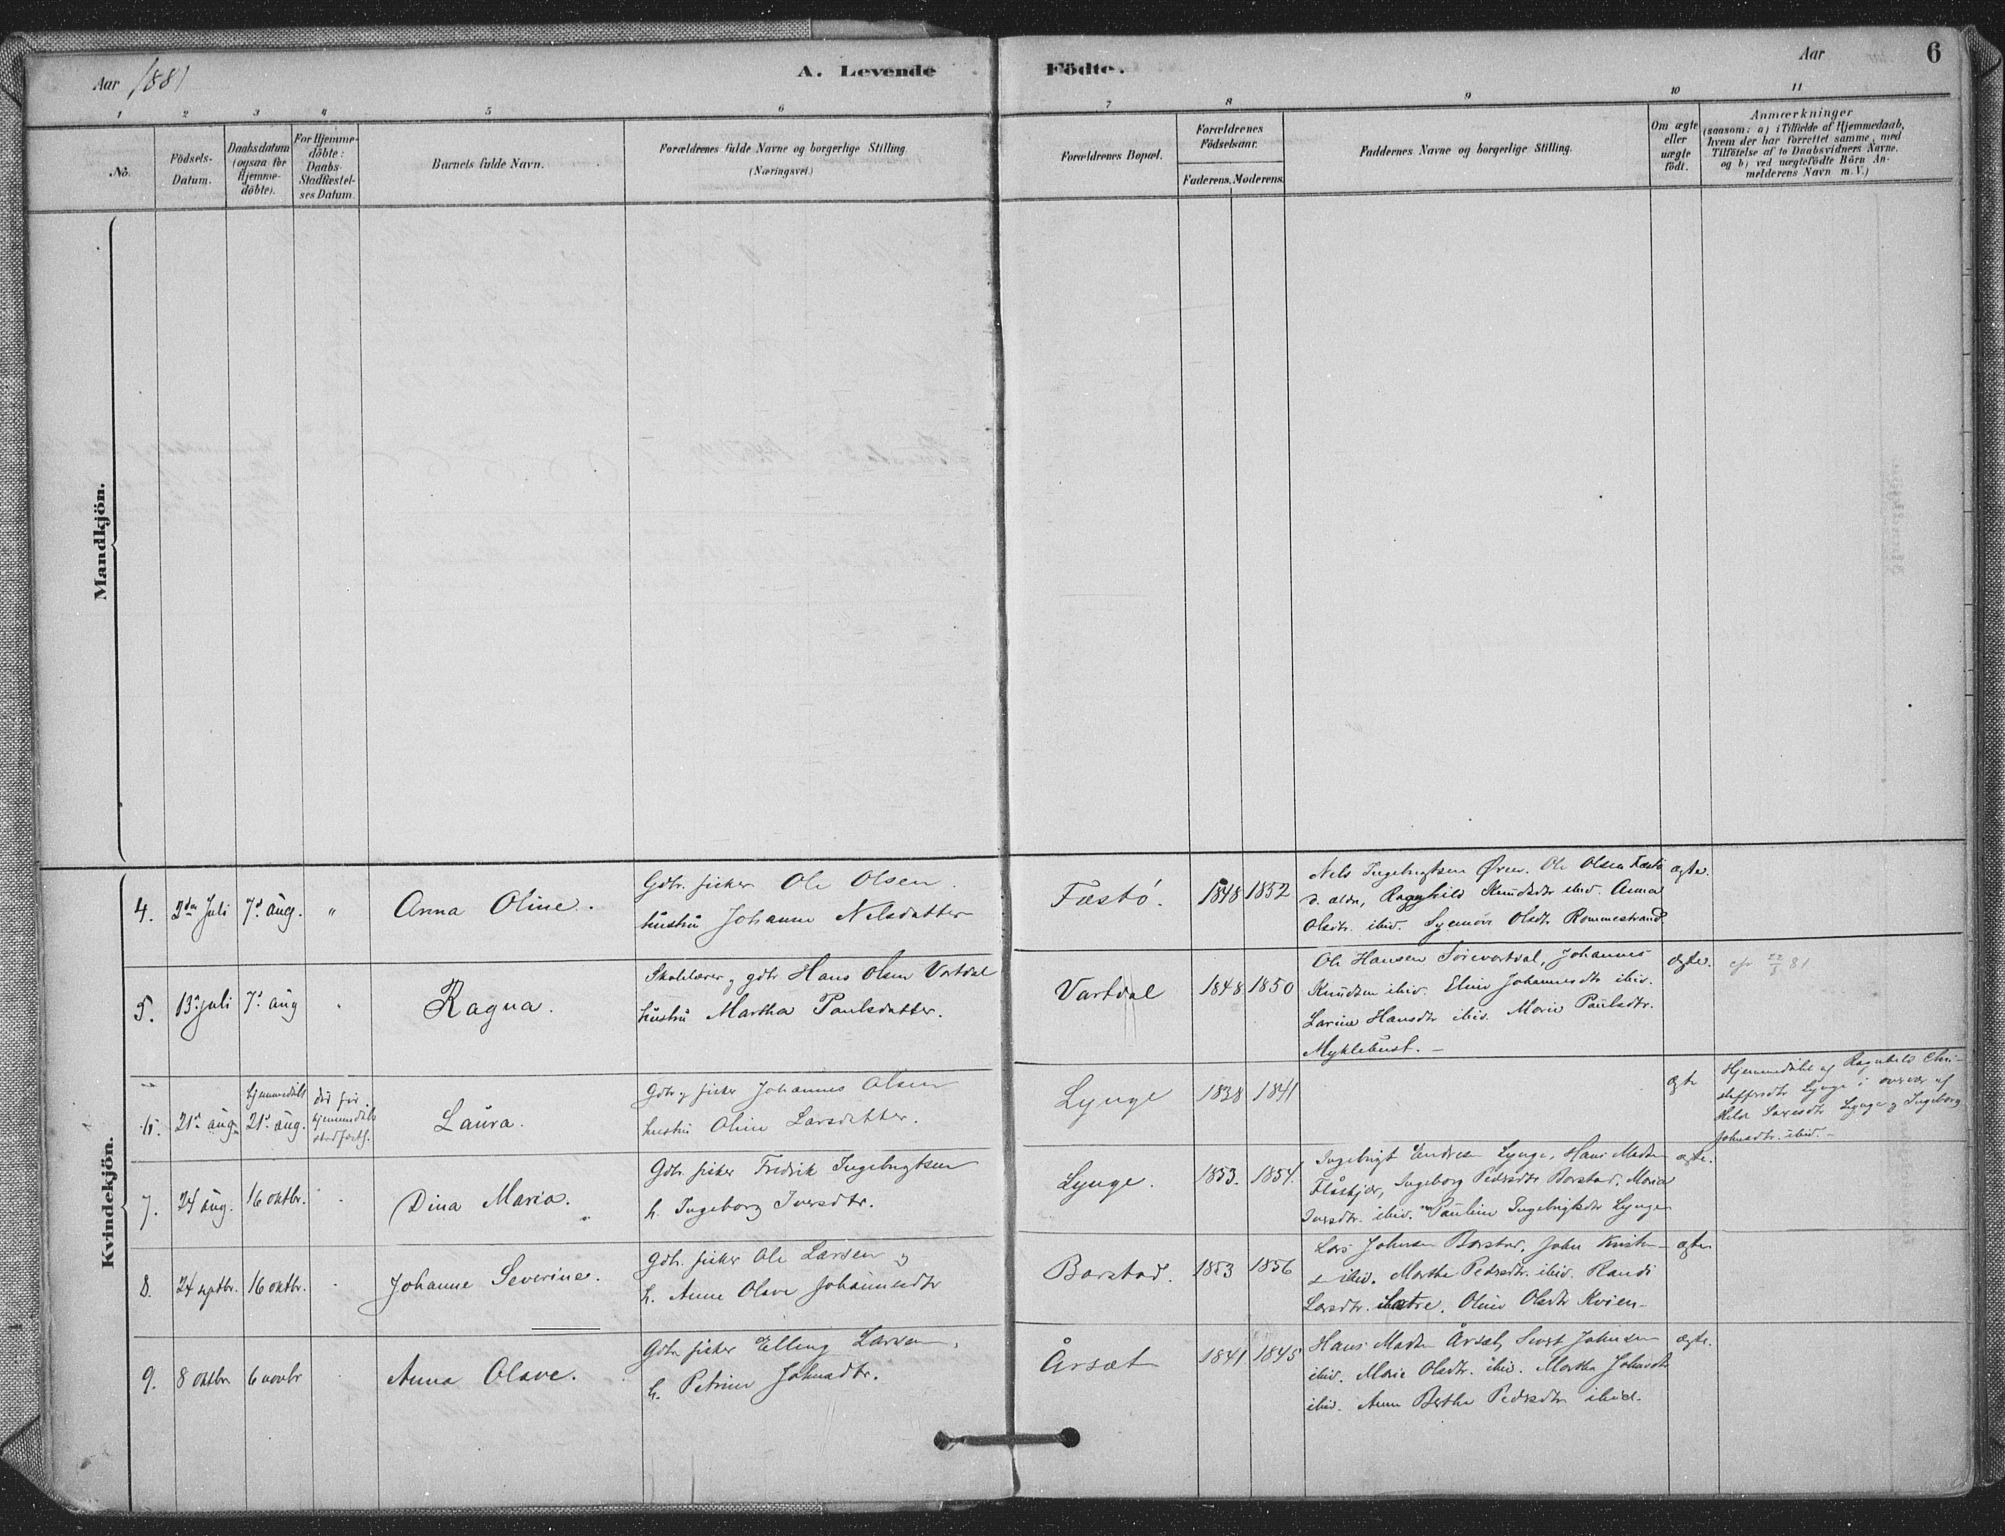 Aar 1881
A. Levende
Födte.
Aar
6
1 2 3 4 5 6 7 8 9 10 11
No.
Födsels-
Datum.
Daabsdatum
(ogsaa for
Hjemme-
döbte).
For Hjemme-
döbte:
Daabs
Stadfæstel-
ses Datum.
Barnets fulde Navn.
Forældrenes fulde Navne og borgerlige Stilling.
(Næringsvei.)
Forældrenes Bopæl.
Forældrenes
Födselsaar.
Faderens. Moderens.
Faddernes Navne og borgerlige Stilling.
Om ægte
eller
uægte
födt.
Anmærkninger
(saasom: a) i Tilfælde af Hjemmedaab,
hvem der har forrettet samme, med
Tilföielse af to Daabsvidners Navne,
og b) ved uægtefödte Börn An-
melderens Navn m. V.)
Mandkjön.
Kvindekjön.
4. 2den Juli 7d aug. " Anna Oline.
Gdbr. fisker Ole Olsen
hustru Johanne Nelsdatter
Fæstö. 1848 1852
Nels Ingebrigtsen Ören. Ole Olsen Fæstö
d. ældre, Ragnhild Knudsdtr ibid. Anna
Olsdtr. ibid. Olsdtr Rommestrand.
ægte.
5. 13de juli 7d aug " Ragna.
Skolelærer og gdbr. Hans Olsen Vartdal
hustru Martha Paulsdatter.
Vartdal 1848 1850
Ole Hansen Sörevartdal, Johannes
Knudsen ibid. Eline Johannesdtr ibid.
Larine Hansdtr ibid. Marie Paulsdtr.
Myklebust. –
ægte.
cfr 22/5 81.
6. 21d aug. hjemmedöbt
21d aug.
död för
hjemmedåb
stadfæst.
Laura.
Gdbr. fisker Johannes Olsen
hustru Oline Larsdatter.
Lynge 1838 1841
ægte
Hjemmedöbt af Ragnhild Chri-
stoffersdtr Lynge i overvær af
Lynge og Ingeborg
Johnsdtr. ibid. –
7. 24 aug. 16 oktbr. " Dina Maria.
Gdbr. fisker Fredrik Ingebrigtsen
h. Ingeborg Iversdtr.
Lynge. 1853. 1854.
Ingebrigt Endresen Lynge, Hans Madsen
Flåskjær, Ingeborg Pedersdtr Barstad, Maria
Iversdtr. ibid. Pauline Ingebrigtsdtr Lynge
ægte.
8. 24 septbr. 16 oktbr. " Johanne Severine.
Gdbr. fisker Ole Larsen og
h. Anne Olave Johannesdtr
Barstad. 1853 1856
Lars Johnsen Barstad, John
ibid. Marthe Pedersdtr. ibid. Randi
Larsdtr. Sætre, Oline Olsdtr Kvien–
ægte
9. 8 oktbr. 6 novbr " Anna Olave.
Gdbr. fisker Elling Larsen,
h. Petrine Johnsdtr.
Årsæt 1841 1845
Hans Madsen Årsæt, Sivert Johnsen
ibid. Marie Olsdtr. ibid. Marthe Johnsdtr
ibid. Anne Berthe Pedersdtr ibid.
ægte.